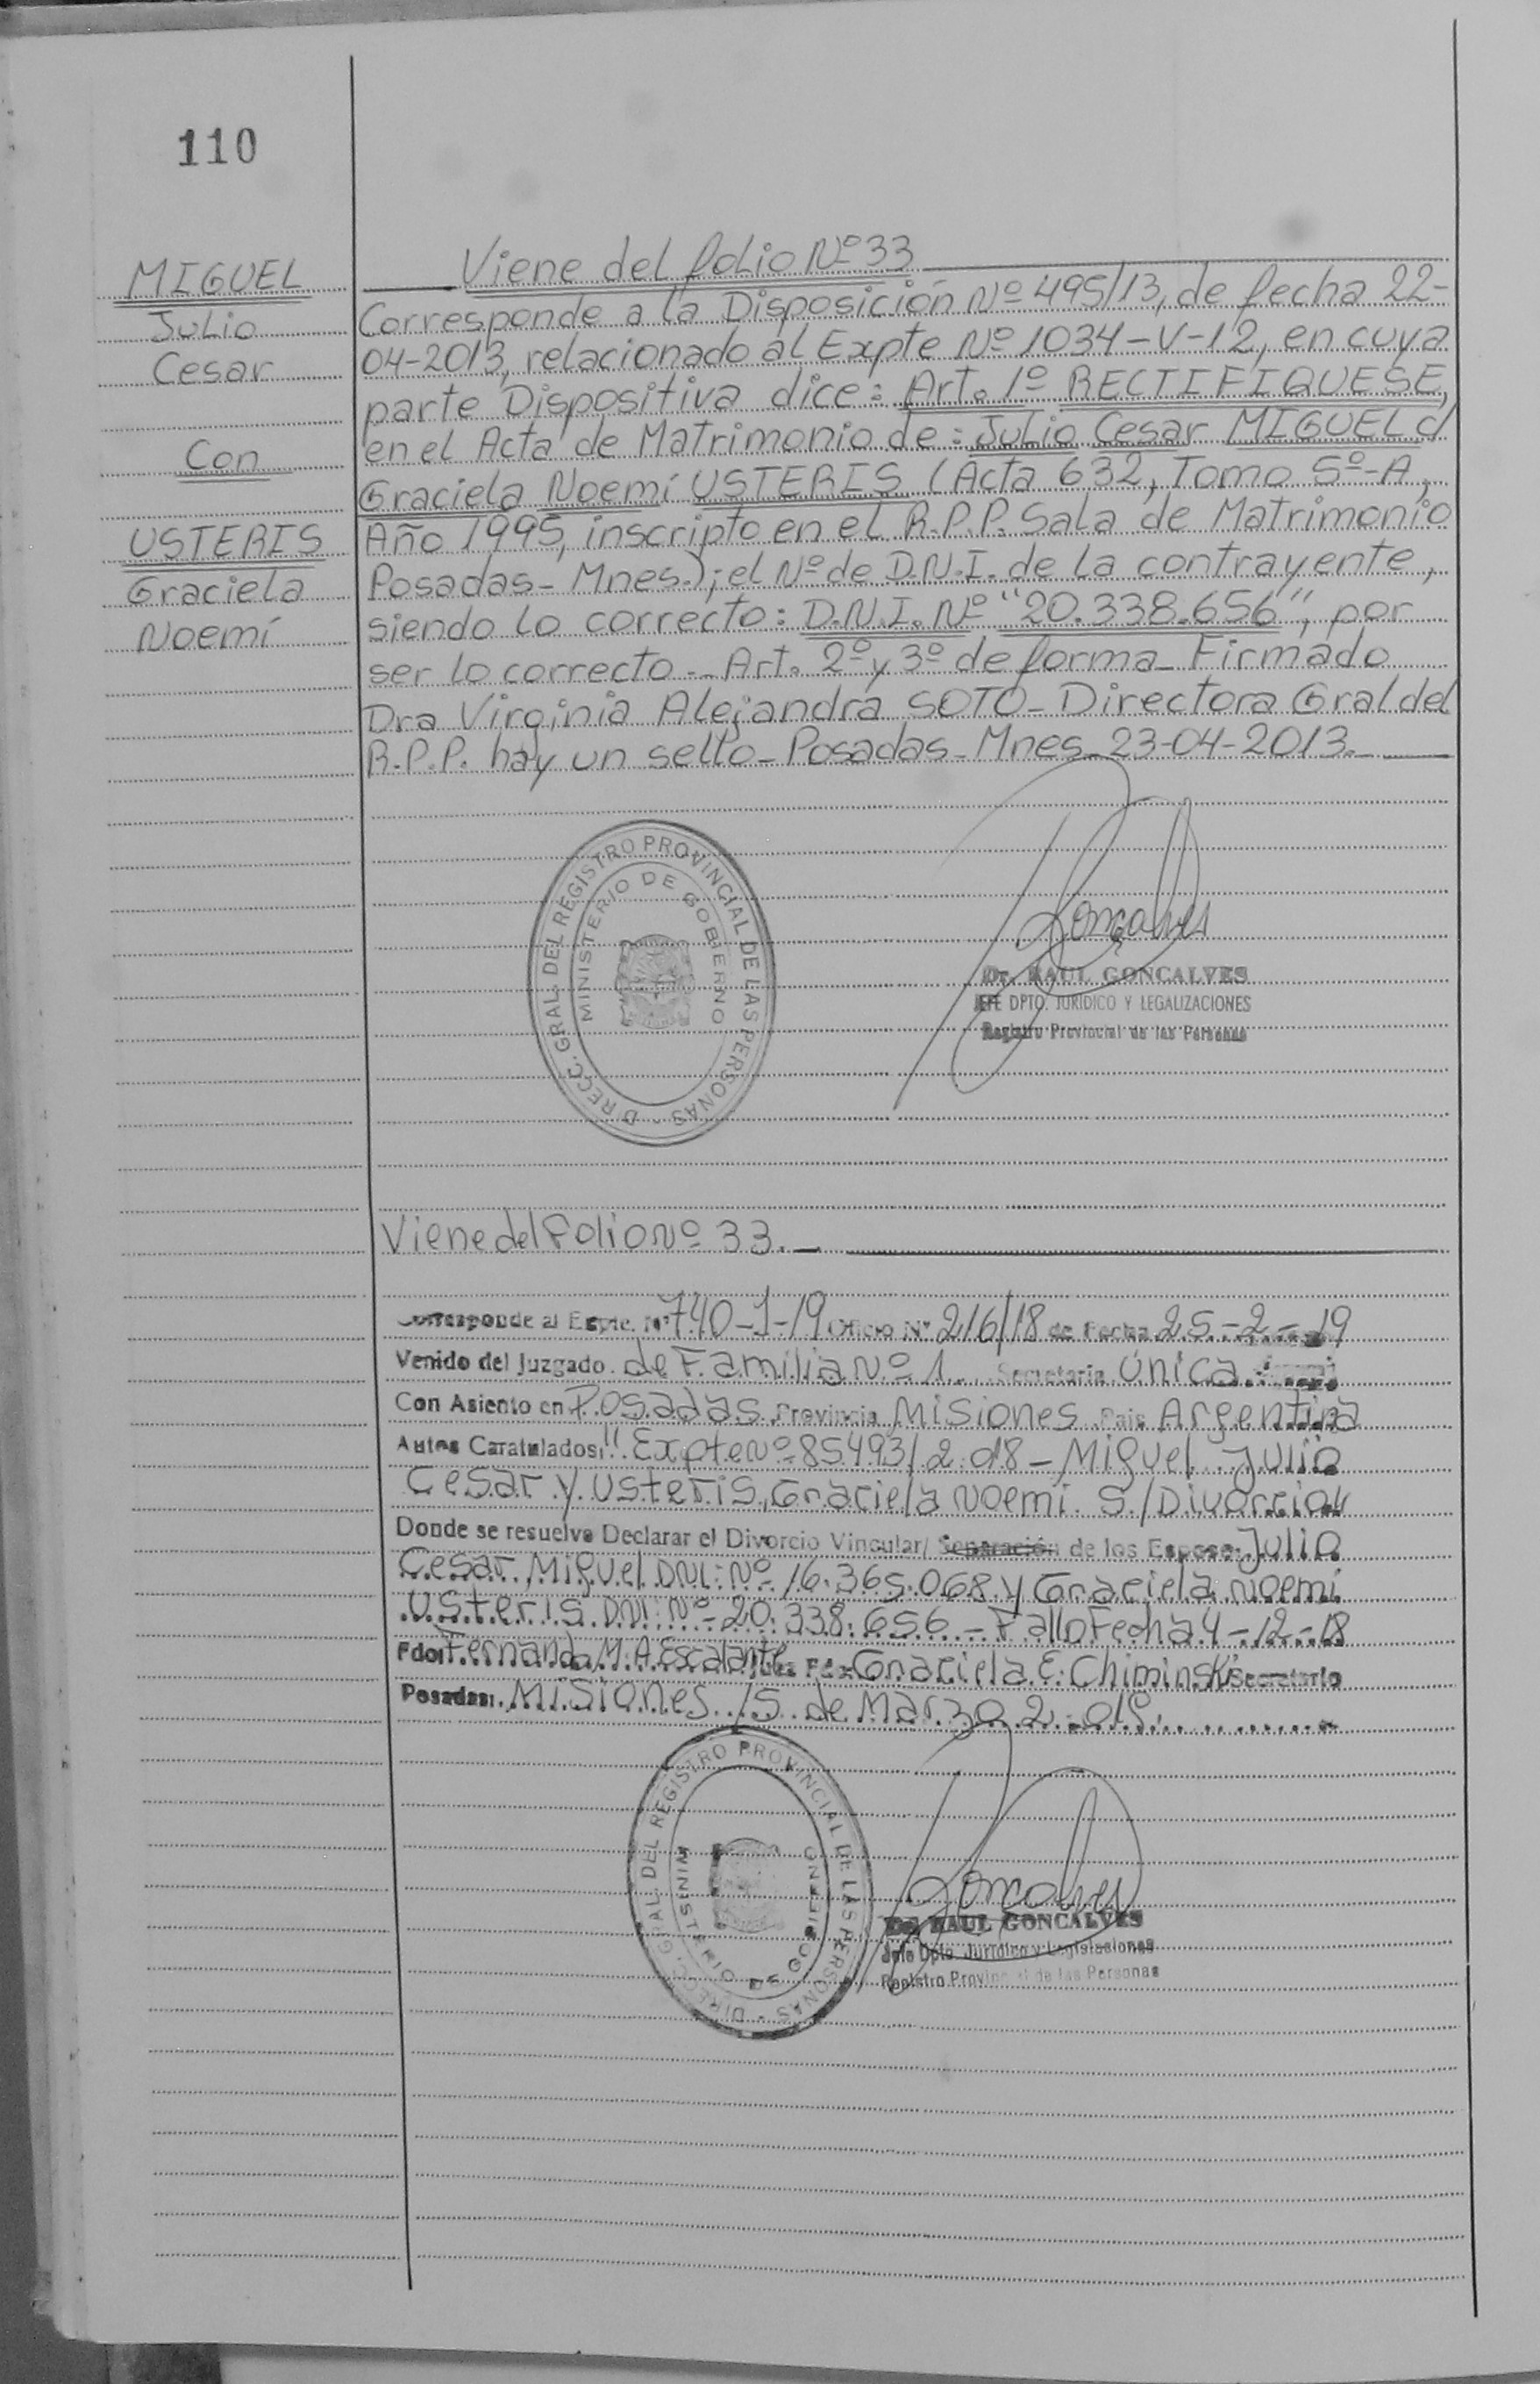 110
MIGUEL
Julio
Cesar
Con
USTERIS
Graciela
Noemí
Viene del folio Nº 33
Corresponde a la Disposición Nº 495/13, de fecha 22-
04-2013, relacionado al Expte Nº 1034-V-12, en cuya
parte Dispositiva dice: Art. 1º RECTIFIQUESE,
en el Acta de Matrimonio de: Julio Cesar MIGUEL c/
Graciela Noemí USTERIS (Acta 632, Tomo 5º-A,
Año 1995, inscripto en el R.P.P. Sala de Matrimonio
Posadas-Mnes.); el Nº de D.N.I. de la contrayente,
siendo lo correcto: D.N.I. Nº "20.338.656", por
ser lo correcto.- Art. 2º y 3º de forma- Firmado
Dra Virginia Alejandra SOTO- Directora Gral del
R.P.P. hay un sello- Posadas- Mnes- 23-04-2013.-
DIRECC. GRAL. DEL REGISTRO PROVINCIAL DE LAS PERSONAS -
MINISTERIO DE GOBIERNO
Goncalves
Dr. RAUL GONCALVES
JEFE DPTO. JURIDICO Y LEGALIZACIONES
Registro Provincial de las Personas
Viene del Folio Nº 33.-
Corresponde al Expte. Nº 740-J-19 Oficio Nº 216/18 de Fecha 25-2-19
Venido del Juzgado de Familia Nº 1 Secretaria Única
Con Asiento en Posadas Provincia Misiones Pais Argentina
Autos Caratulados: "Expte Nº 85493/2.018 - Miguel Julio
Cesar y Usteris, Graciela Noemi S/Divorcio"
Donde se resuelve Declarar el Divorcio Vincular/ Separación de los Esposos: Julio
Cesar Miguel DNI: Nº 16.365.068 y Graciela Noemi
Usteris DNI: Nº 20.338.656 - Fallo Fecha 4-12-18
Fdo: Fernanda M. A. Escalante Juez Fdo: Graciela E. Chiminski Secretario
Posadas: Misiones 15 de Marzo
DIRECC. GRAL. DEL REGISTRO PROVINCIAL DE LAS PERSONAS -
MINISTERIO DE GOBIERNO
Goncalves
Dr. RAUL GONCALVES
Jefe Dpto. Jurídico y Legislaciones
Registro Provincial de las Personas